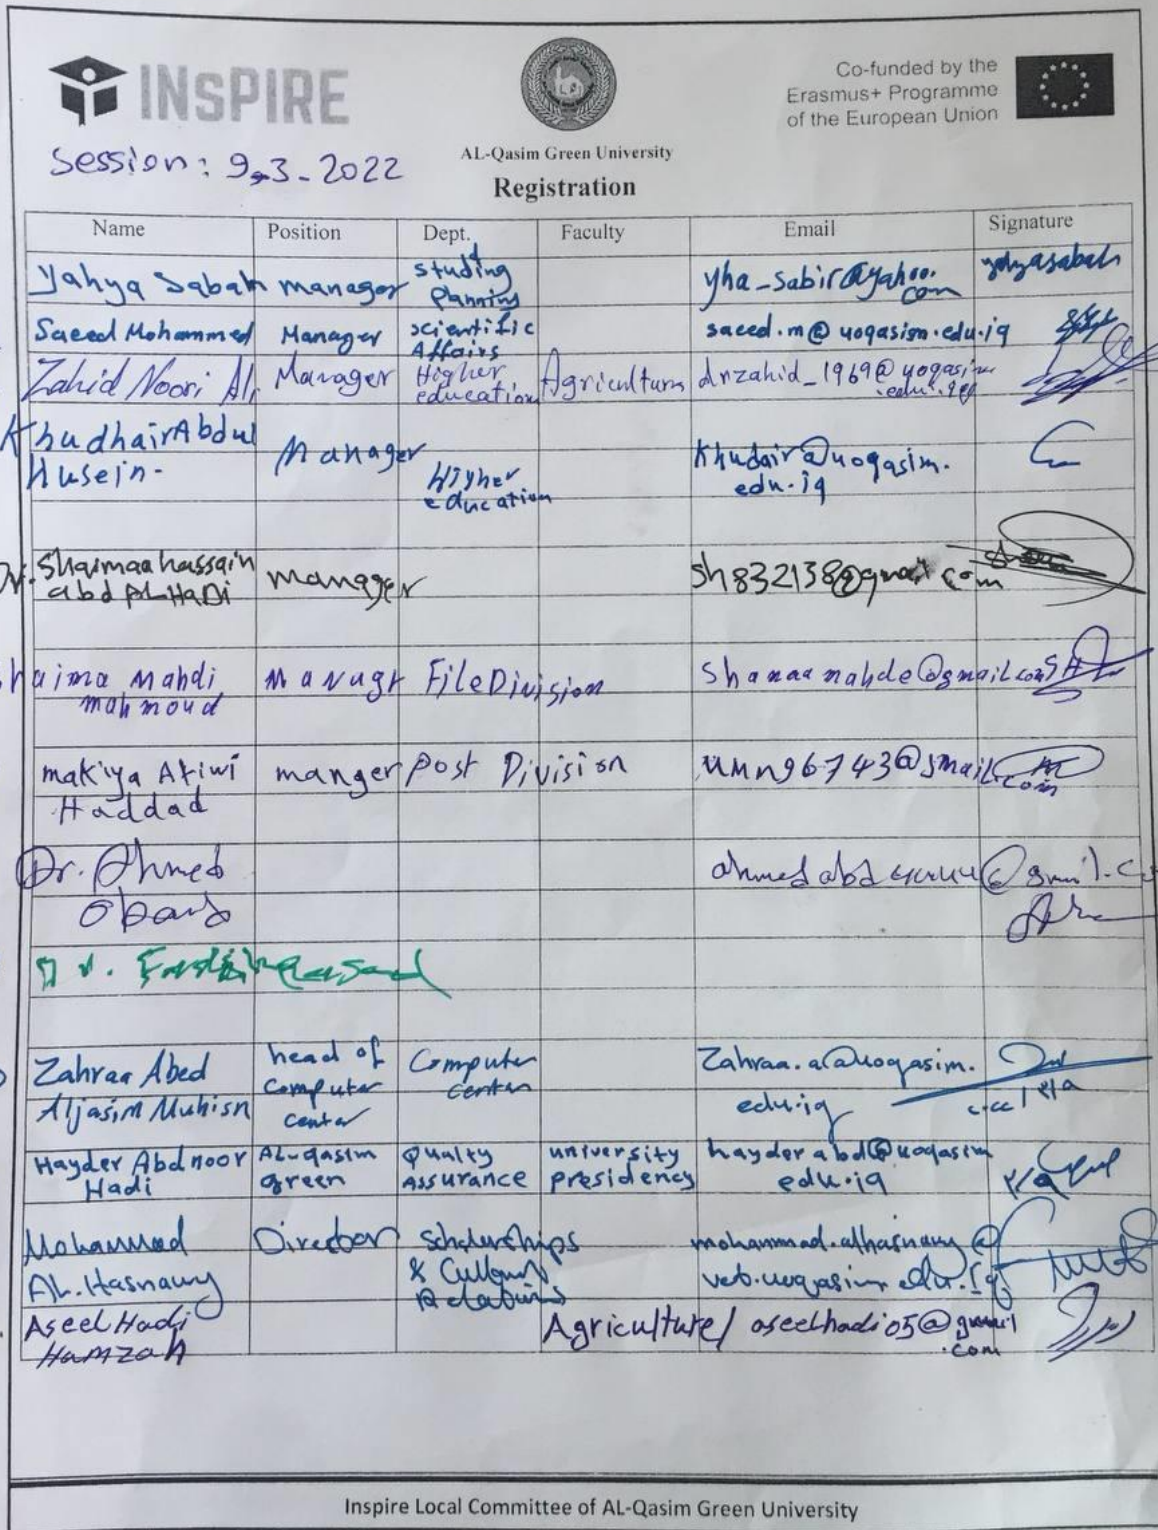 INSPIRE
Co-funded by the
Erasmus+ Programme
of the European Union
AL-Qasim Green University
Session: 9-3-2022
Registration
Name Position Dept. Faculty Email Signature
Yahya Sabah manager studing planning yha_sabir@yahoo.com yahyasabah
Saeed Mohammed Manager scientific Affairs saeed.m@uoqasim.edu.iq
Zahid Noori Ali Manager Higher education Agriculture
Khudhair Abdul Husein- Manager Higher education Khudair@uoqasim.edu.iq
Dr. Shaimaa hassain abd ALHaDi manager sh832138@gmail.com
Shaima Mahdi mahmoud Managr File Division
makiya Atiwi Haddad manger post Division
Dr. Ahmed
Dr.
Zahraa Abed Aljasim Muhisn head of Computer center Computer center Zahraa.a@uoqasim.edu.iq
Hayder Abdnoor Hadi AL-qasim green Qualty Assurance university presidency hayderabd@uoqasim edu.iq
Mohammad AL.Hasnawy Director Scholarships & Relations
Aseel Hadi Hamzah Agriculture/ aseelhadi05@gmail.com
Inspire Local Committee of AL-Qasim Green University